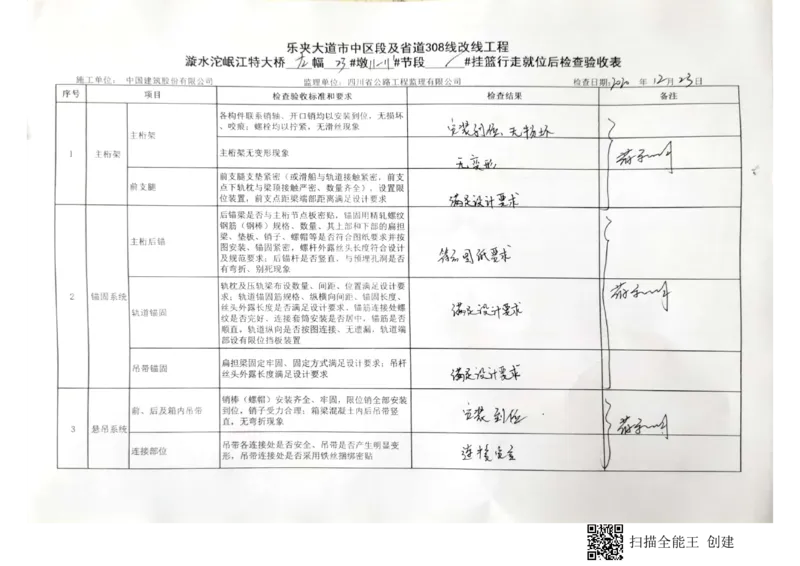 乐夹大道市中区段及省道308线改线工程
漩水沱岷江特大桥 左 幅 23 #墩 11-11 #节段 / #挂篮行走就位后检查验收表
施工单位： 中国建筑股份有限公司 监理单位：四川省公路工程监理有限公司 检查日期：2020 年 12 月 23 日
序号 项目 检查验收标准和要求 检查结果 备注
1 主桁架
主桁架
各构件联系销轴、开口销均以安装到位，无损坏
、咬痕；螺栓均以拧紧，无滑丝现象
安装到位、无损坏
主桁架无变形现象
无变形
前支腿
前支腿支垫紧密（或滑船与轨道接触紧密，前支
点下轨枕与梁顶接触严密、数量齐全），设置限
位装置，前支点距梁端部距离满足设计要求
满足设计要求
2 锚固系统
主桁后锚
后锚梁是否与主桁节点板密贴，锚固用精轧螺纹
钢筋（钢棒）规格、数量、其上部和下部的扁担
梁、垫板、销子、螺帽等是否符合图纸要求并按
图安装、锚固紧密，螺杆外露丝头长度符合设计
及规范要求；后锚杆是否竖直，与预埋孔洞是否
有弯折、别死现象
符合图纸要求
轨道锚固
轨枕及压轨梁布设数量、间距、位置满足设计要
求；轨道锚固筋规格、纵横向间距、锚固长度、
丝头外露长度是否满足设计要求，锚筋连接处螺
纹是否完好、连接套筒安装是否居中，锚筋是否
顺直，轨道纵向是否按图连接、无遗漏，轨道端
部设有限位挡板装置
满足设计要求
吊带锚固
扁担梁固定牢固、固定方式满足设计要求；吊杆
丝头外露长度满足设计要求
满足设计要求
3 悬吊系统
前、后及箱内吊带
销棒（螺帽）安装齐全、牢固，限位销全部安装
到位，销子受力合理；箱梁混凝土内后吊带竖
直，无弯折现象
安装到位
连接部位
吊带各连接处是否安全、吊带是否产生明显变
形，吊带连接处是否采用铁丝捆绑密贴
连接安全
扫描全能王 创建